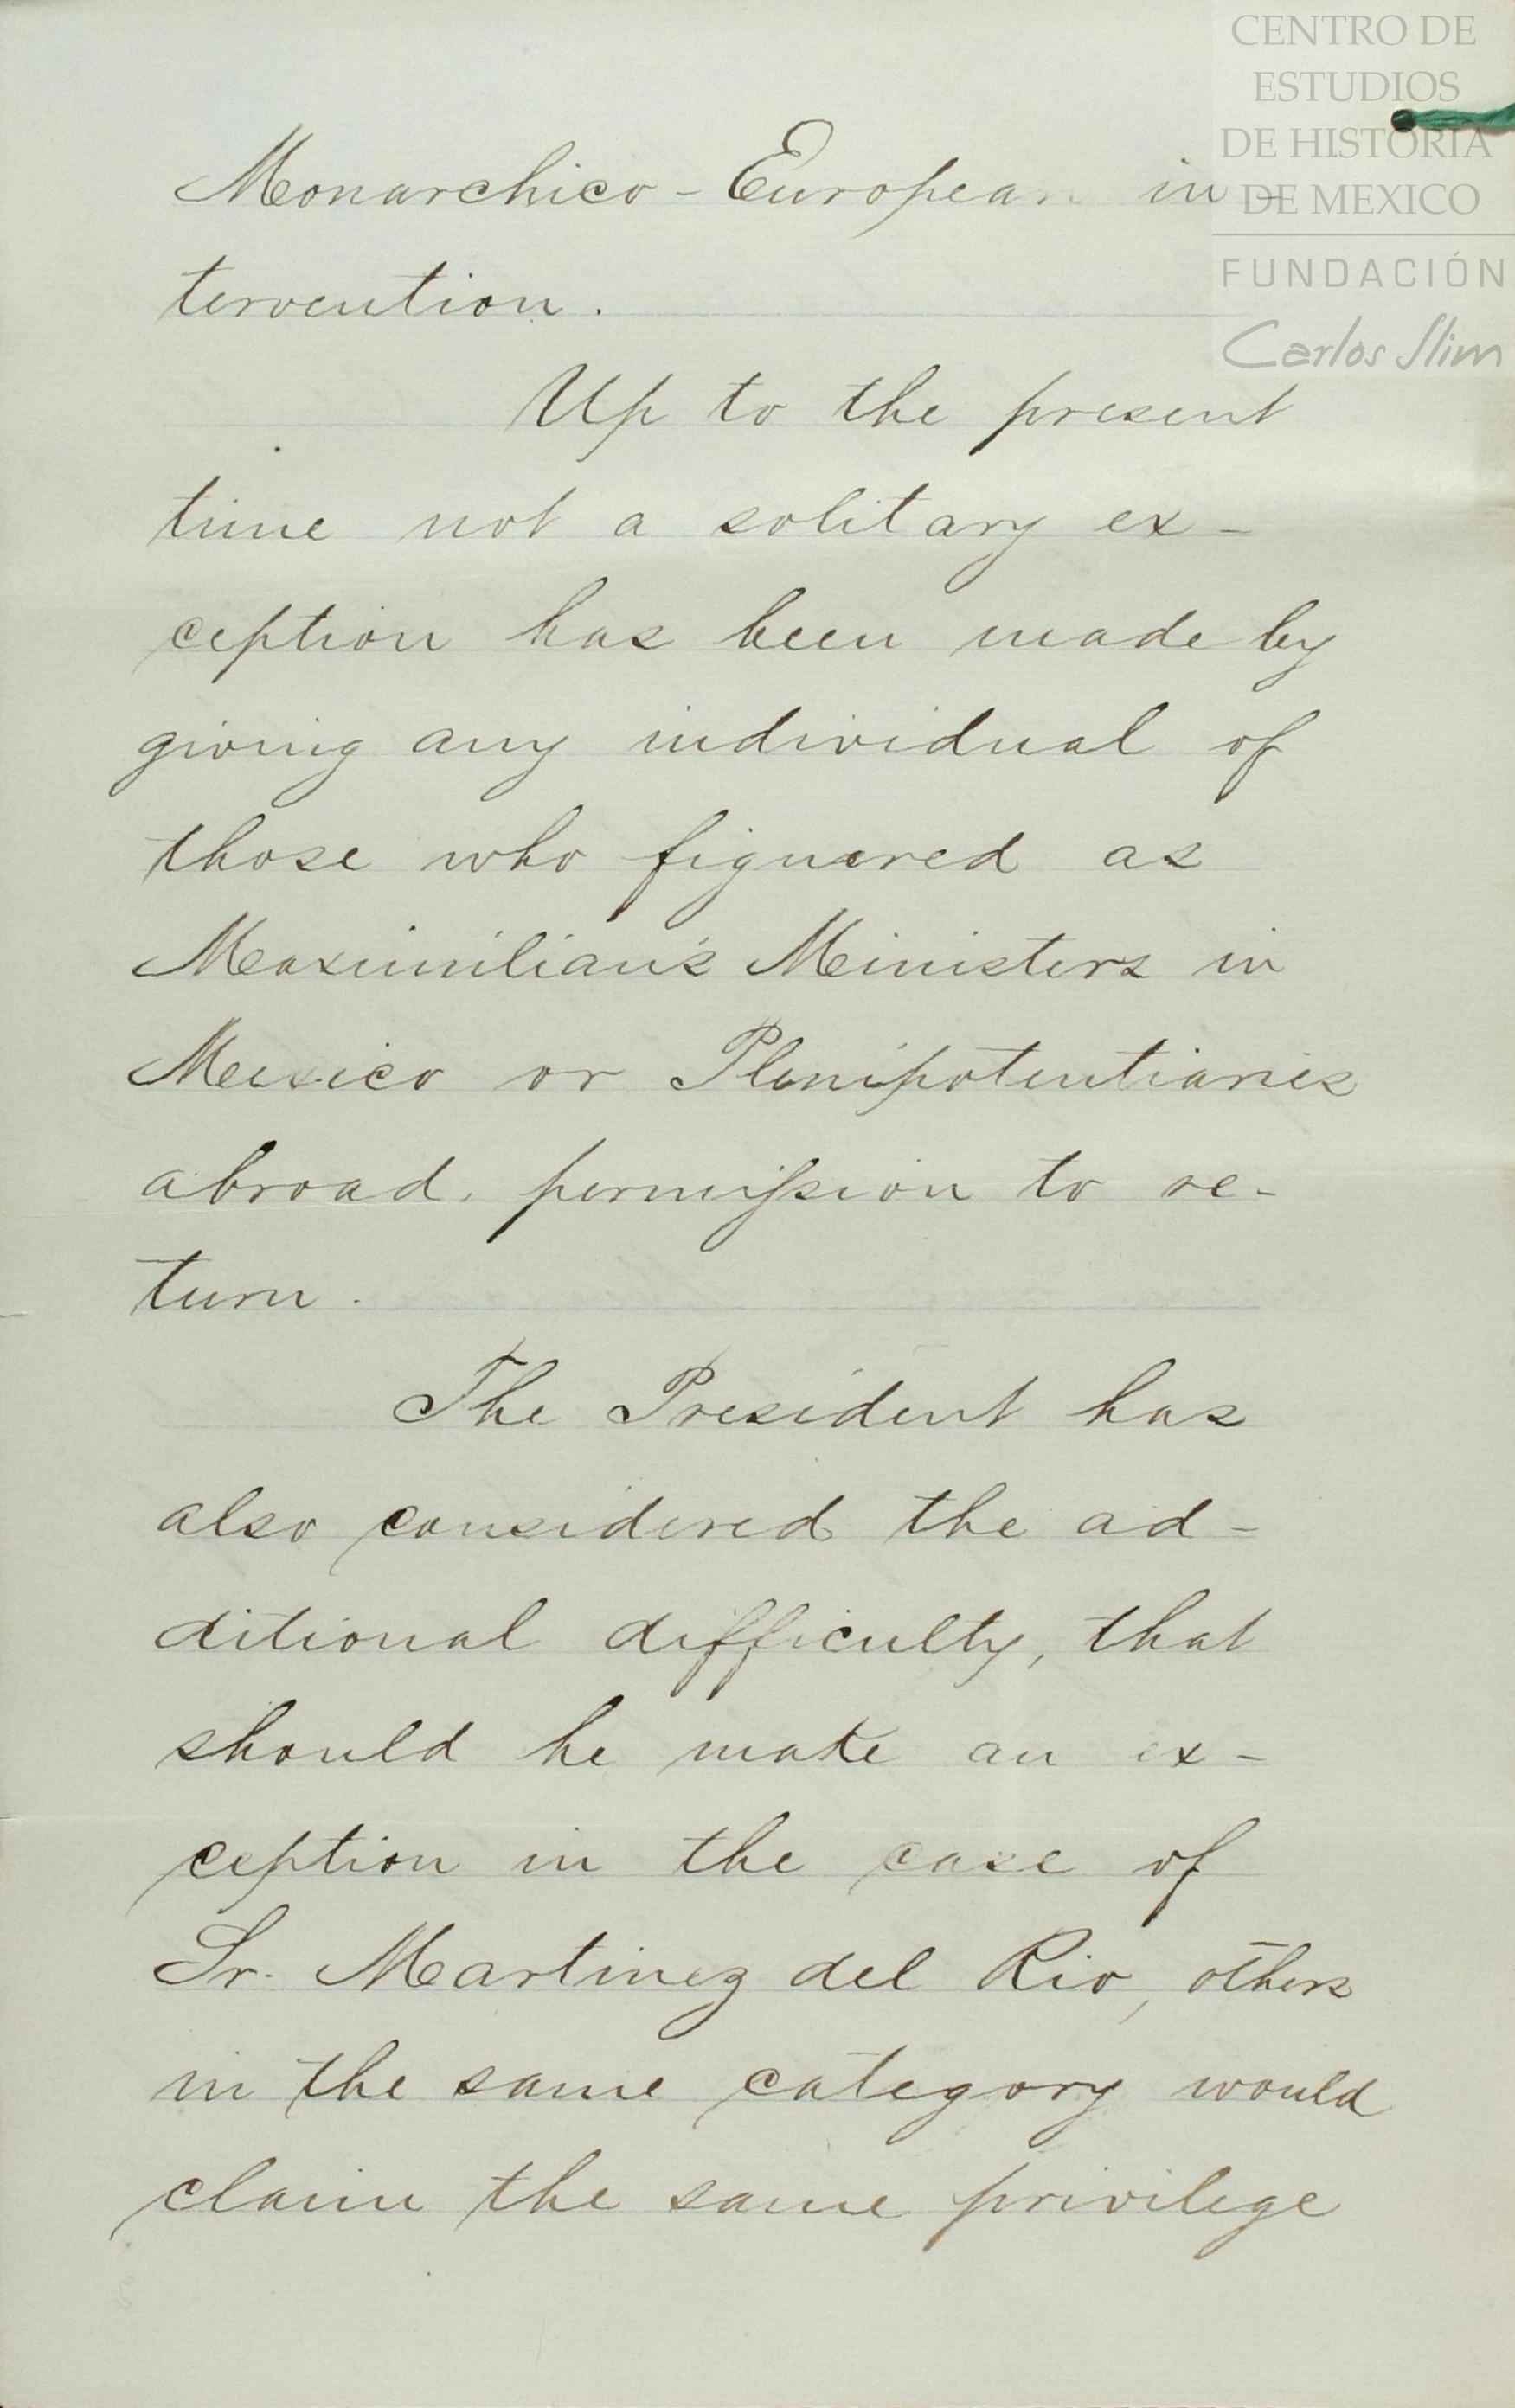 CENTRO DE
ESTUDIOS
DE HISTORIA
DE MEXICO
FUNDACIÓN
Carlos Slim
Monarchico-European in-
tervention.
Up to the present
time not a solitary ex-
ception has been made by
giving any individual of
those who figuered as
Maximilian's Ministers in
Mexico or Plenipotentiaries
abroad. permission to re-
turn.
The President has
also considered the ad-
ditional difficulty, that
should he make an ex-
ception in the case of
Sr. Martinez del Rio, others
in the same category would
claim the same privilege